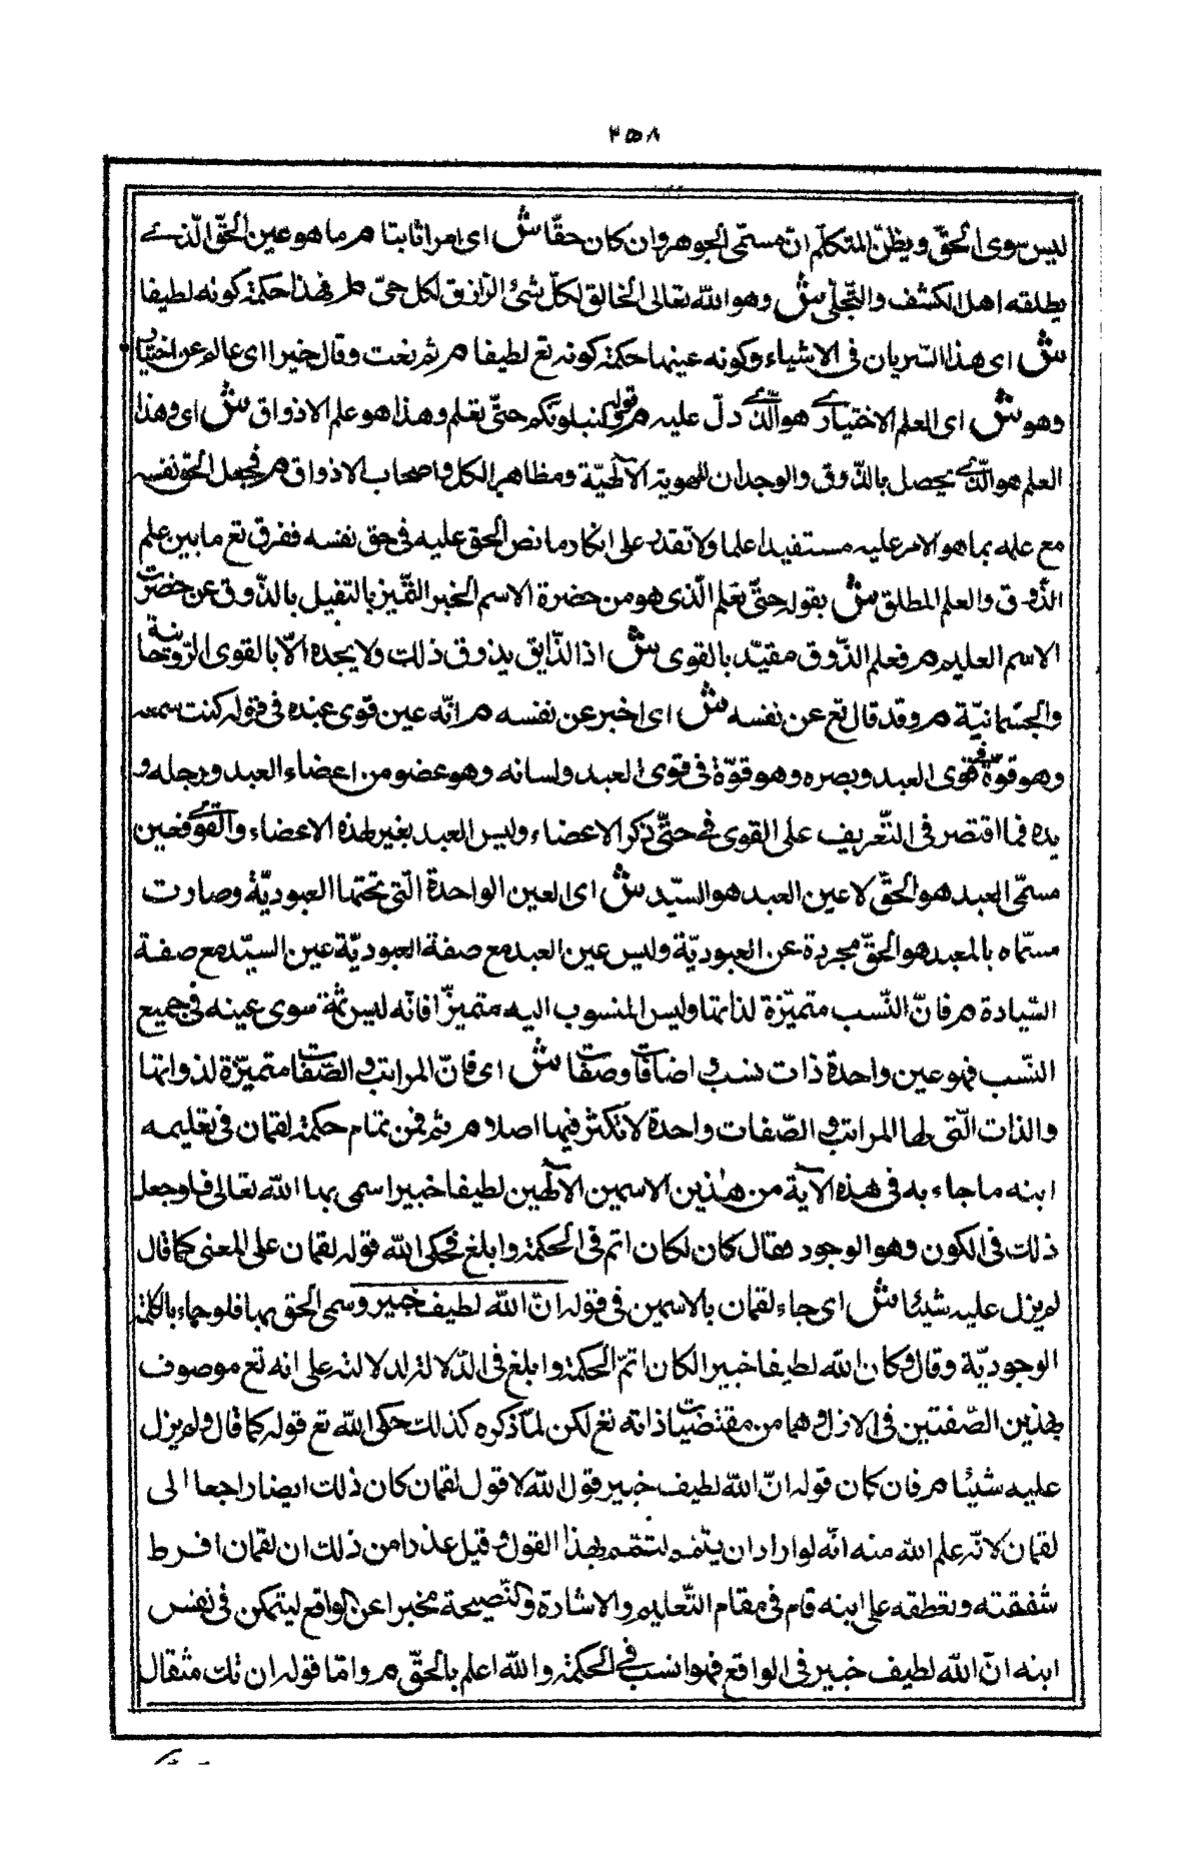 ٣٥٨
ليس سوى الحقّ ويظنّ المتكلم انّ مسمّى الجوهر وان كان حقّا ش اى امرا ثابتا م ما هو عين الحقّ الّذى
يطلقه اهل الكشف والتّجلّى ش وهو الله تعالى الخالق لكلّ شئ الرّازق لكل حىّ م فهذا حكمة كونه لطيفا
ش اى هذا السّريان فى الاشياء وكونه عينها حكمة كونه تع لطيفا م ثم نعت وقال خبيرا اى عالم عن اختبار
وهو ش اى العلم الاختبارى هو الّذى دلّ عليه م قوله لنبلونّكم حتّى نعلم وهذا هو علم الاذواق ش اى وهذا
العلم هو الّذى يحصل بالذّوق والوجدان للهوية الآلهيّة ومظاهر الكل واصحاب الاذواق م فجعل الحق نفسه
مع علمه بما هو الامر عليه مستفيدا علما ولا تقدر على انكار ما نص الحق عليه فى حق نفسه ففرق تع ما بين علم
الذّوق والعلم المطلق ش بقوله حتّى نعلم الّذى هو من حضرة الاسم الخبير القّيز بالتفيل بالذّوق عن حضرت
الاسم العليم م فعلم الذّوق مقيّد بالقوى ش اذ الذّايق يذوق ذلك ولا يجده الّا بالقوى الرّوحانية
والجسمانيّة م وقد قال تع عن نفسه ش اى اخبر عن نفسه م انّه عين قوى عبده فى قوله كنت سمعه
وهو قوّة من قوى العبد وبصره وهو قوّة فى قوى العبد ولسانه وهو عضو من اعضاء العبد ورجله و
يده فما اقتصر فى التّعريف على القوى فحسب حتّى ذكر الاعضاء وليس العبد بغير لهذه الاعضاء والقوى فعين
مسمّى العبد هو الحقّ لا عين العبد هو السيّد ش اى العين الواحدة الّتى تحتها العبوديّة وصارت
مسمّاه بالمعبد هو الحقّ مجردة عن العبوديّة وليس عين العبد مع صفة العبوديّة عين السيّد مع صفة
السّيادة م فانّ النّسب متميّزة لذاتها وليس المنسوب اليه متميزّا فانّه ليس ثمّة سوى عينه فى جميع
النّسب فهو عين واحدة ذات نسب و اضافات وصفات ش اى فانّ المراتب والصّفات متميّزة لذواتها
والذات الّتى لها المراتب والصّفات واحدة لا تكثر فيها اصلا م ثم فمن تمام حكمة لقمان فى تعليمه
ابنه ما جاء به فى هذه الآية من هٰذين الاسمين الآلهين لطيفا خبيرا سمى بهما الله تعالى فلو جعل
ذلك فى الكون وهو الوجود فقال كان لكان اتم فى الحكمة وابلغ فحكى الله قوله لقمان على المعنى كما قال
لم يزل عليه شيئا ش اى جاء لقمان بالاسمين فى قوله انّ الله لطيف خبير وسمى الحق بهما فلو جاء بالكلمة
الوجوديّة وقال وكان الله لطيفا خبيرا لكان اتمّ الحكمة وابلغ فى الدّلالة لدلالته على انه تع موصوف
بهذين الصّفتين فى الازل وهما من مقتضيات ذاته تع لكن لمّا ذكره كذلك حكى الله تع قوله كما قال ولم يزل
عليه شيئا م فان كان قوله انّ الله لطيف خبير قول الله لا قول لقمان كان ذلك ايضا راجعا الى
لقمان لانّه علم الله منه انّه لو اراد ان يتمّه لتمّمه بهذا القول وقيل عذرا من ذلك ان لقمان افرط
شفقته وتعطفه على ابنه قام فى مقام التّعليم والاشارة والنّصيحة مخبرا عن الواقع ليتمكن فى نفس
ابنه انّ الله لطيف خبير فى الواقع فهو انسب فى الحكمة والله اعلم بالحقّ م وامّا قوله ان تك مثقال